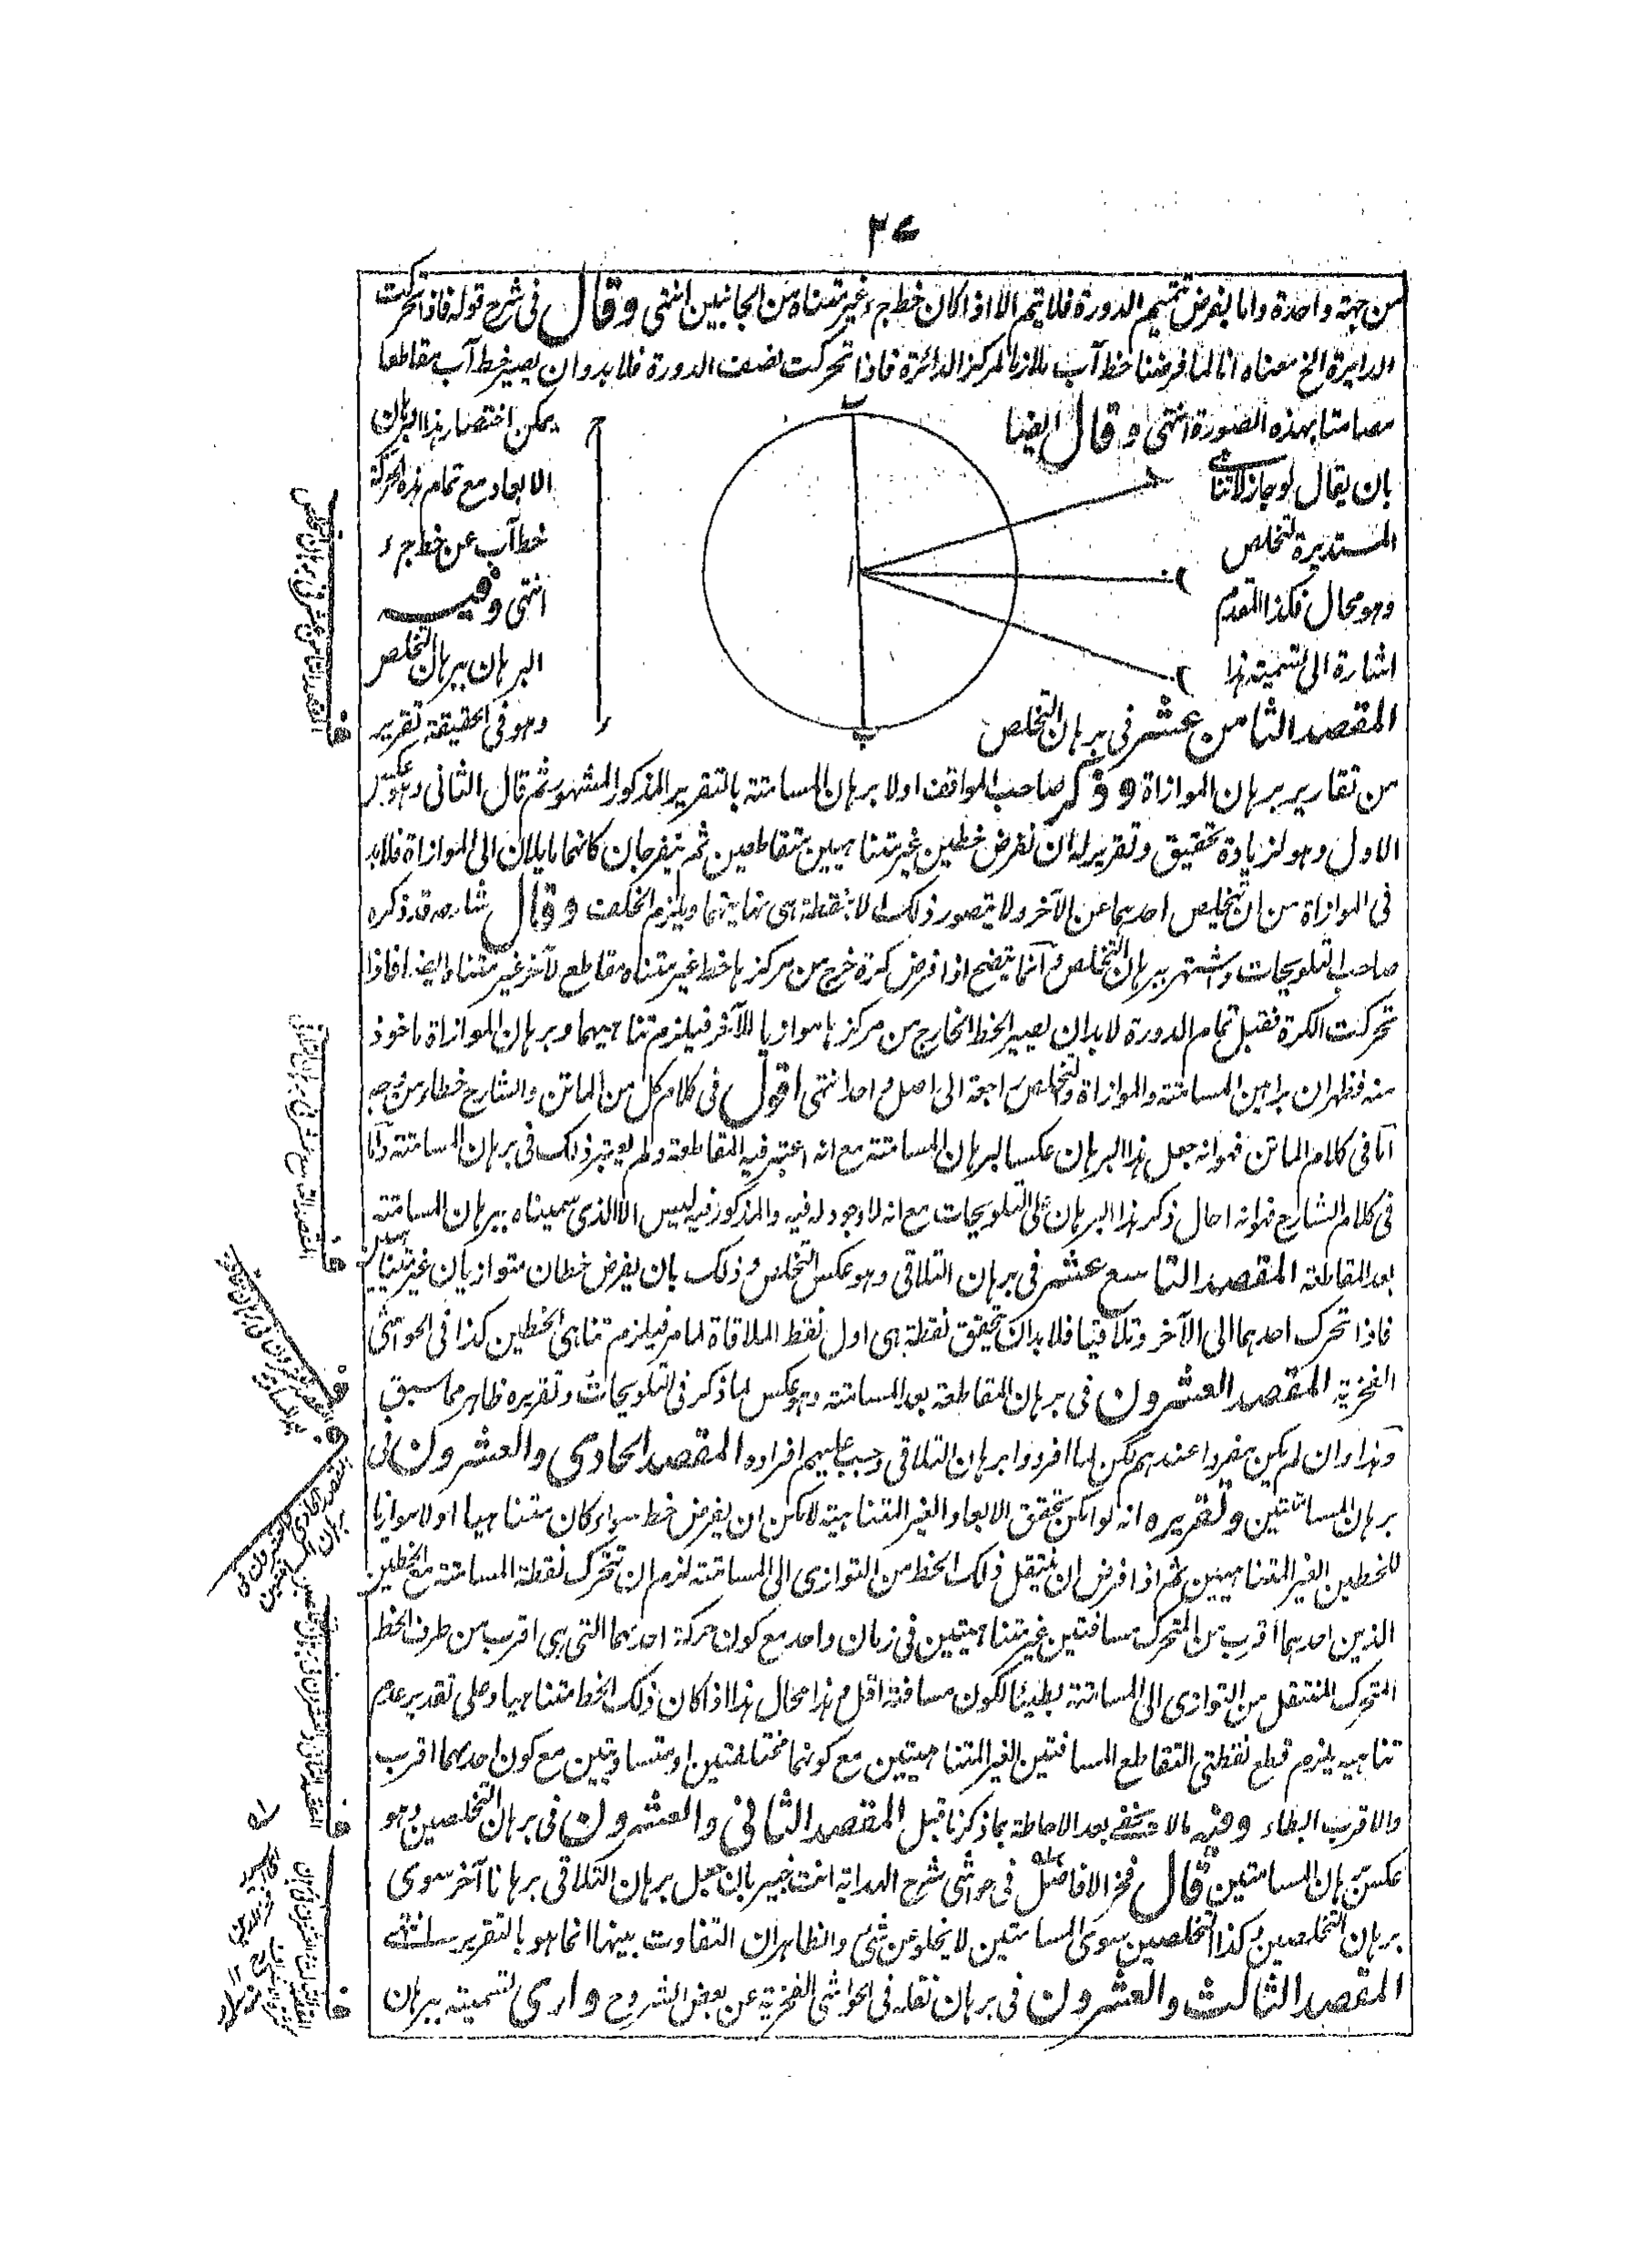 ٢٧
من جهة واحدة واما بفرض تتميم الدورة فلا يتم الا اذا كان خط جء غير متناه من الجانبين انتهى وقال فى شرح قوله فاذا تحركت
الدايرة الخ معناه انا لما فرضنا خط آب ملازما لمركز الدائرة فاذا تحركت نصف الدورة فلا بد وان يصير خط آب مقاطعا
مسامتا بهذه الصورة انتهى وقال ايضا يمكن اختصار هذا البرهان
بان يقال لو جاز لا تناهى الابعاد مع تمام هذه الحركة
المستديرة لتخلص خط آب عن خط جء
وهو محال فكذا المقدم انتهى وفيه
اشارة الى تسمية هذا البرهان ببرهان التخلص
المقصد الثامن عشر فى برهان التخلص وهو فى الحقيقة تقرير
ب
ا
ب
ج
ء
من تقارير برهان الموازاة وذكر صاحب المواقف اولا برهان المسامتة بالتقرير المذكور المشهور ثم قال الثانى وهو عكس
الاول وهو لزيادة تحقيق وتقرير له ان نفرض خطين غير متناهيين متقاطعين ثم ينفرجان كانهما مايلان الى الموازاة فلا بد
فى الموازاة من ان يتخلص احدهما عن الآخر ولا يتصور ذلك الا بنقطة هى نهايتهما ويلزم الخلف وقال شارحه قد ذكره
صاحب التلويحات واشتهر ببرهان التخلص وانما يتضح اذا فرض كرة خرج من مركزها خط غير متناه مقاطع لآخر غير متناه ايضا فاذا
تحركت الكرة فقبل تمام الدورة لا بد ان يصير الخط الخارج من مركزها موازيا للآخر فيلزم تناهيهما وبرهان الموازاة ماخوذ
منه فظهر ان براهين المسامتة والموازاة والتخلص راجعة الى اصل واحد انتهى اقول فى كلام كل من الماتن والشارح خطاء من وجه
اما فى كلام الماتن فهو انه جعل هذا البرهان عكسا لبرهان المسامتة مع انه اعتبر فيه المقاطعة ولم يعتبر ذلك فى برهان المسامتة واما
فى كلام الشارح فهو انه احال ذكر هذا البرهان الى التلويحات مع انه لا وجود له فيه والمذكور فيه ليس الا الذى سميناه ببرهان المسامتة
بعد المقاطعة المقصد التاسع عشر فى برهان التلاقى وهو عكس التخلص وذلك بان يفرض خطان متوازيان غير متناهيين
فاذا تحرك احدهما الى الآخر وتلاقيا فلا بد ان تحقق نقطة هى اول نقط الملاقاة لما مر فيلزم تناهى الخطين كذا فى الحواشى
الفخرية المقصد العشرون فى برهان المقاطعة بعد المسامتة وهو عكس لما ذكر فى التلويحات وتقريره ظاهر مما سبق
وهذا وان لم يكن منفردا عندهم لكن لما افردوا برهان التلاقى وجب عليهم افراده المقصد الحادى والعشرون فى
برهان المسامتتين وتقريره انه لو امكن تحقق الابعاد الغير المتناهية لامكن ان يفرض خط سواء كان متناهيا اولا موازيا
للخطين الغير المتناهيين ثم اذا فرض ان ينتقل ذلك الخط من التوازى الى المسامتة لزم ان تتحرك نقطة المسامتة مع الخطين
الذين احدهما اقرب من المتحرك مسافتين غير متناهيتين فى زمان واحد مع كون حركة احدهما التى هى اقرب من طرف الخط
المتحرك المنتقل من التوازى الى المسامتة بطيئا لكون مسافته اقل وهذا محال هذا اذا كان ذلك الخط متناهيا وعلى تقدير عدم
تناهيه يلزم قطع نقطتى التقاطع المسافتين الغير المتناهيتين مع كونهما مختلفتين او متساويتين مع كون احدهما اقرب
والاقرب ابطاء وفيه ما لا يخفى بعد الاحاطة بما ذكرنا قبل المقصد الثانى والعشرون فى برهان التخلصين وهو
عكس برهان المسامتين قال فخر الافاضل فى حواشى شرح الهداية انت خبير بان جعل برهان التلاقى برهانا آخر سوى
برهان التخلصين وكذا التخلصين سوى المسامتين لا يخلو عن شئ والظاهر ان التفاوت بينها انما هو بالتقرير انتهى
المقصد الثالث والعشرون فى برهان نقله فى الحواشى الفخرية عن بعض الشروح وارى تسميته ببرهان
ف
المقصد الثامن عشر فى برهان التخلص
ف
المقصد التاسع عشر فى برهان التلاقى
ف
المقصد العشرون فى برهان المقاطعة بعد المسامتة
ف
المقصد الحادى والعشرون فى برهان المسامتتين
ف
المقصد الثانى والعشرون فى برهان التخلصين
ف
المقصد الثالث والعشرون